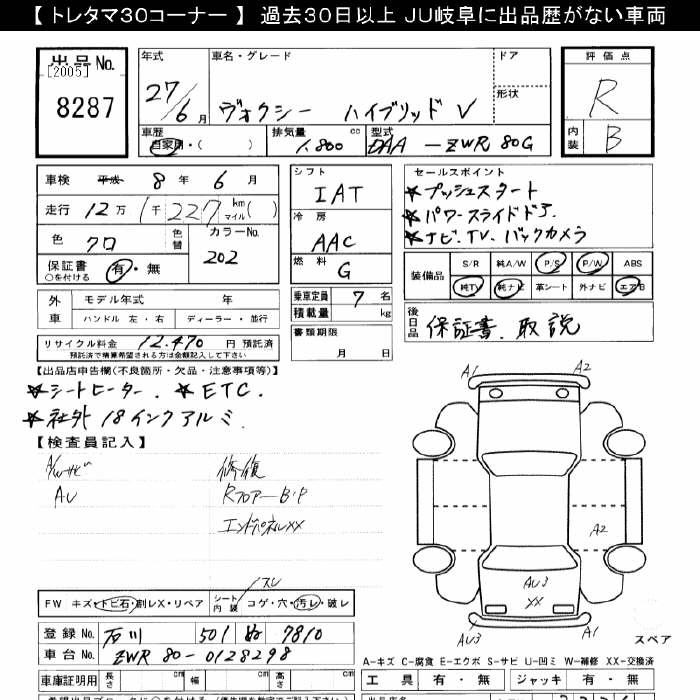 【 トレタマ30コーナー 】 過去30日以上 JU岐阜に出品歴がない車両
出品No.
[2005]
8287
年式
27/6月
車名・グレード
ヴォクシー ハイブリッド V
ドア
形状
評価点
R
内装
B
車歴
自家用・( )
排気量
1.800 cc
型式
DAA-ZWR80G
車検 平成 8年 6月
走行 12万 1千 227 km マイル( )
色 クロ
色替
カラーNo.
202
保証書 ○を付ける
有・無
シフト
IAT
冷房
AAC
燃料
G
乗車定員 7名
積載量 kg
書類期限
月 日
セールスポイント
★プッシュスタート
★パワースライドドア.
★ナビ.TV.バックカメラ
装備品
S/R 純A/W P/S P/W ABS
純TV 純ナビ 革シート 外ナビ エアB
後日品
保証書.取説
外車
モデル年式 年
ハンドル 左・右 ディーラー・並行
リサイクル料金 12.470円 預託済
預託済で精算希望されない方は金額記入して下さい
【出品店申告欄(不良箇所・欠品・注意事項等)】
★シートヒーター. ★ETC.
★社外18インクアルミ.
【検査員記入】
A/Wサビ
AU
修復
RフロアーB・P
エンドパネルXX
A1
A2
A2
AU3
XX
AU3
A1
スペア
スレ
FW キズ・トビ石・創レX・リペア
シート内装
コゲ・穴・汚レ・破レ
登録No. 石川 501 ぬ 7810
車台No. ZWR80-0128298
A-キズ C-腐食 E-エクボ S-サビ U-凹ミ W-補修 XX-交換済
車庫証明用 長さ cm 幅 cm 高さ cm
工具 有・無 ジャッキ 有・無